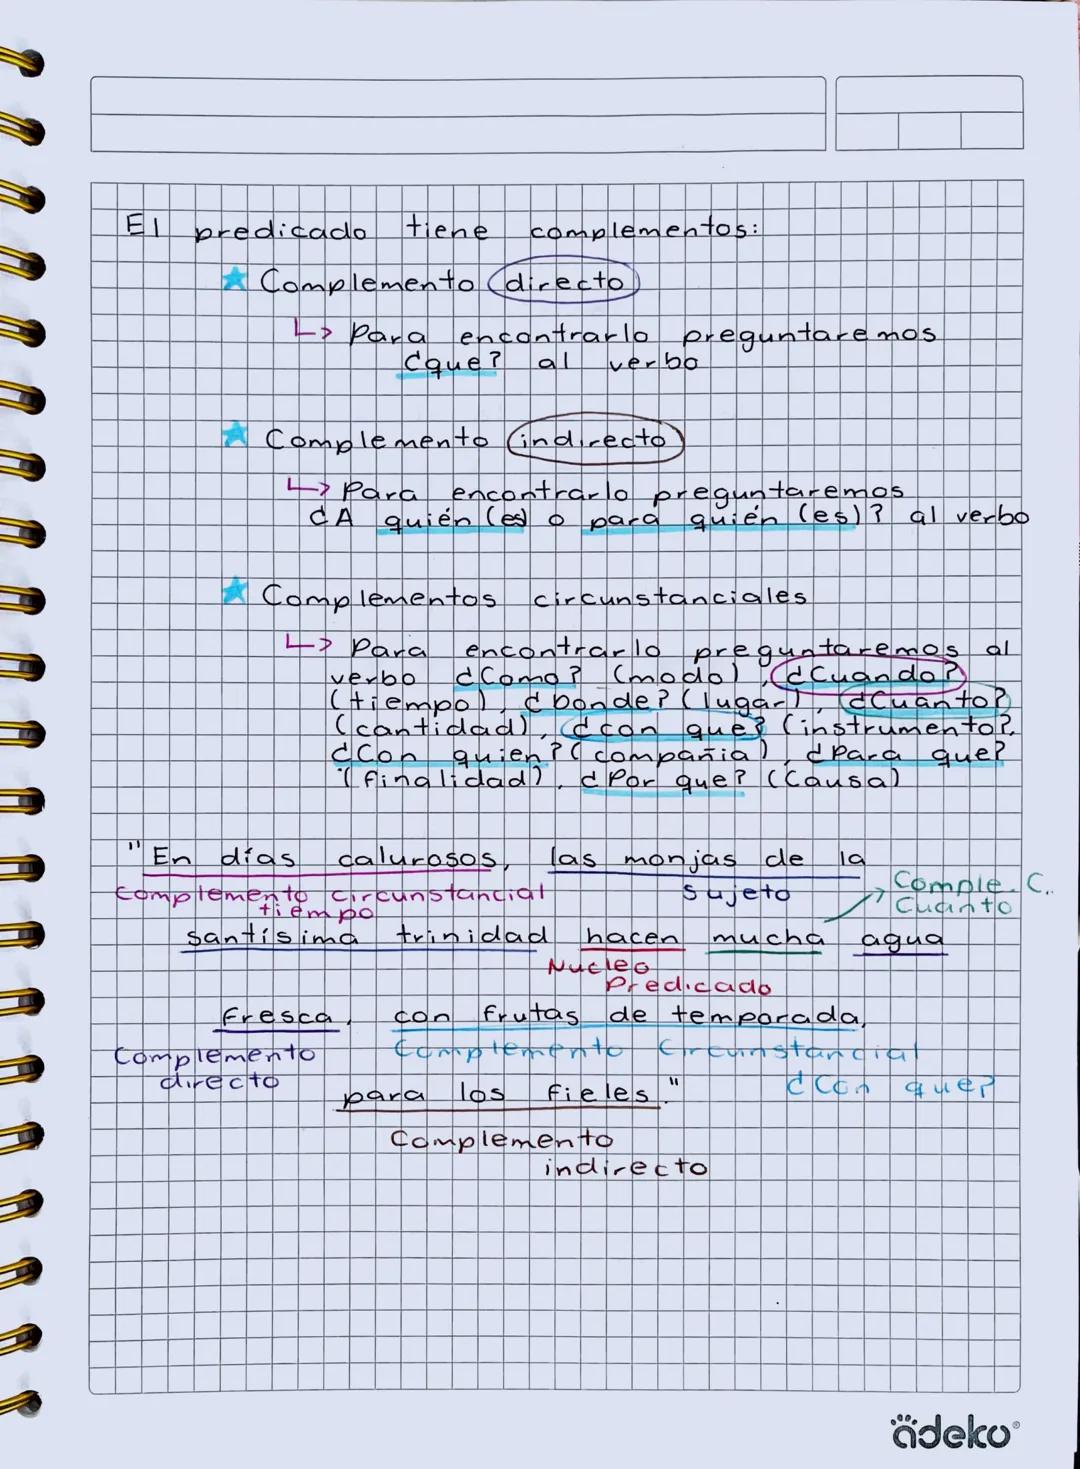 El predicado tiene complementos:
Complemento directo
↳ Para encontrarlo preguntaremos
¿que? al verbo
Complemento indirecto
↳ Para encontrarlo preguntaremos
¿A quién (es) o para quién (es)? al verbo
Complementos circunstanciales
↳ Para encontrarlo preguntaremos al
verbo ¿Como? (modo), ¿Cuando?
(tiempo), ¿Donde? (lugar), ¿Cuanto?
(cantidad), ¿con que? (instrumento?,
¿Con quien? (compañia), ¿Para que?
(finalidad), ¿Por que? (Causa)
"En días calurosos, las monjas de la
Complemento circunstancial sujeto
tiempo
Comple. C..
Cuanto
santísima trinidad hacen mucha agua
Nucleo
Predicado
fresca, con frutas de temporada,
Complemento Complemento Circunstancial
directo ¿Con que?
para los fieles."
Complemento
indirecto
ädeko®